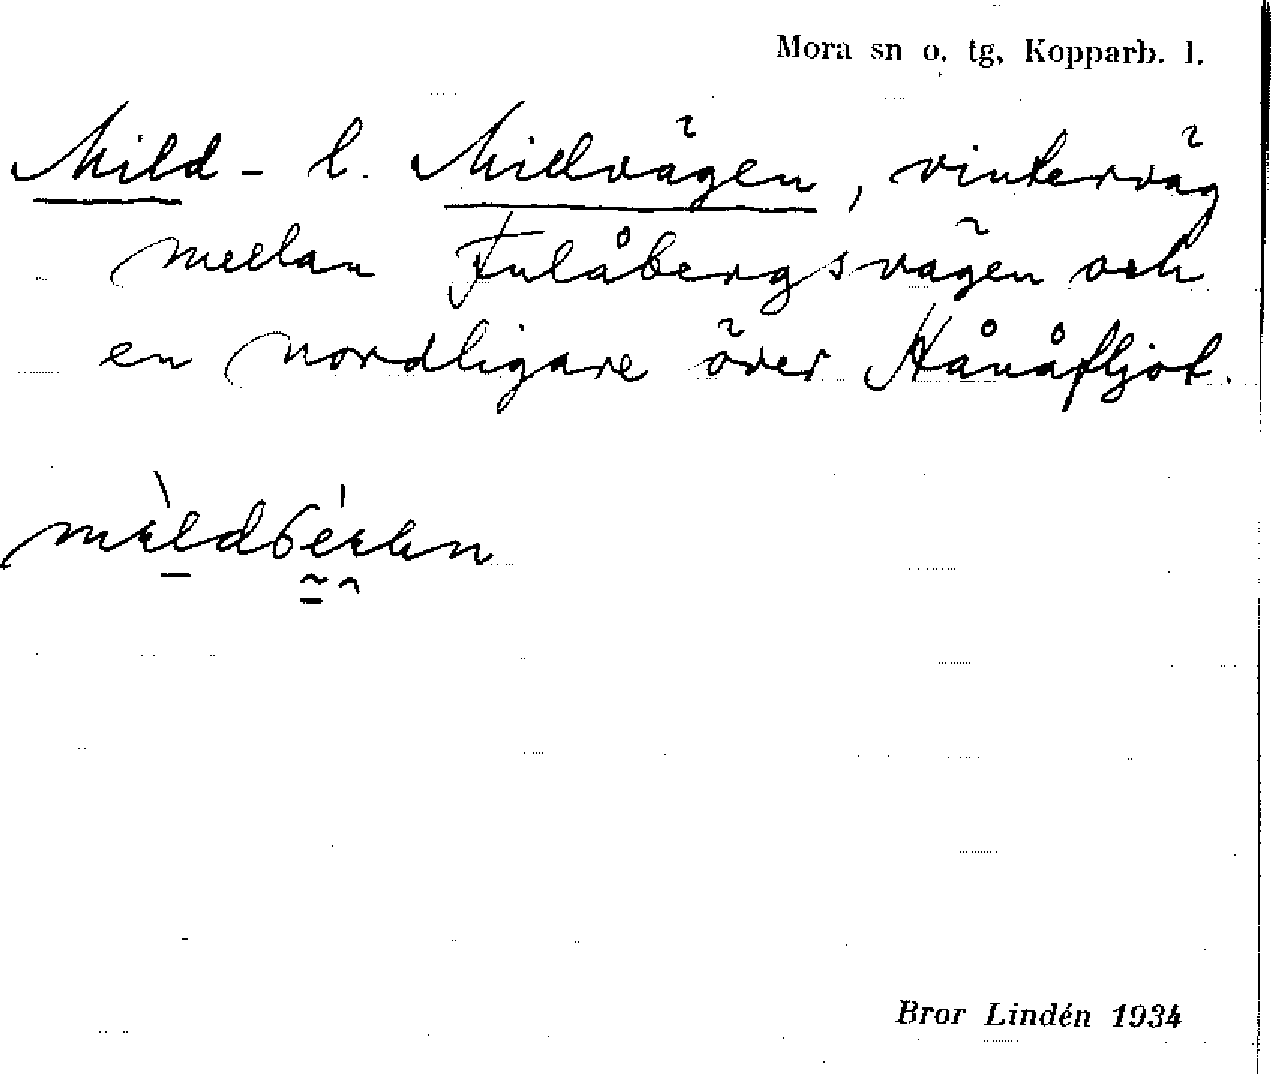 Mora sn o. tg, Kopparb. l.
Mild- l. Millvägen, vinterväg
mellan Fulåbergsvägen och
en nordligare över Hånåfljot.
Bror Lindén 1934